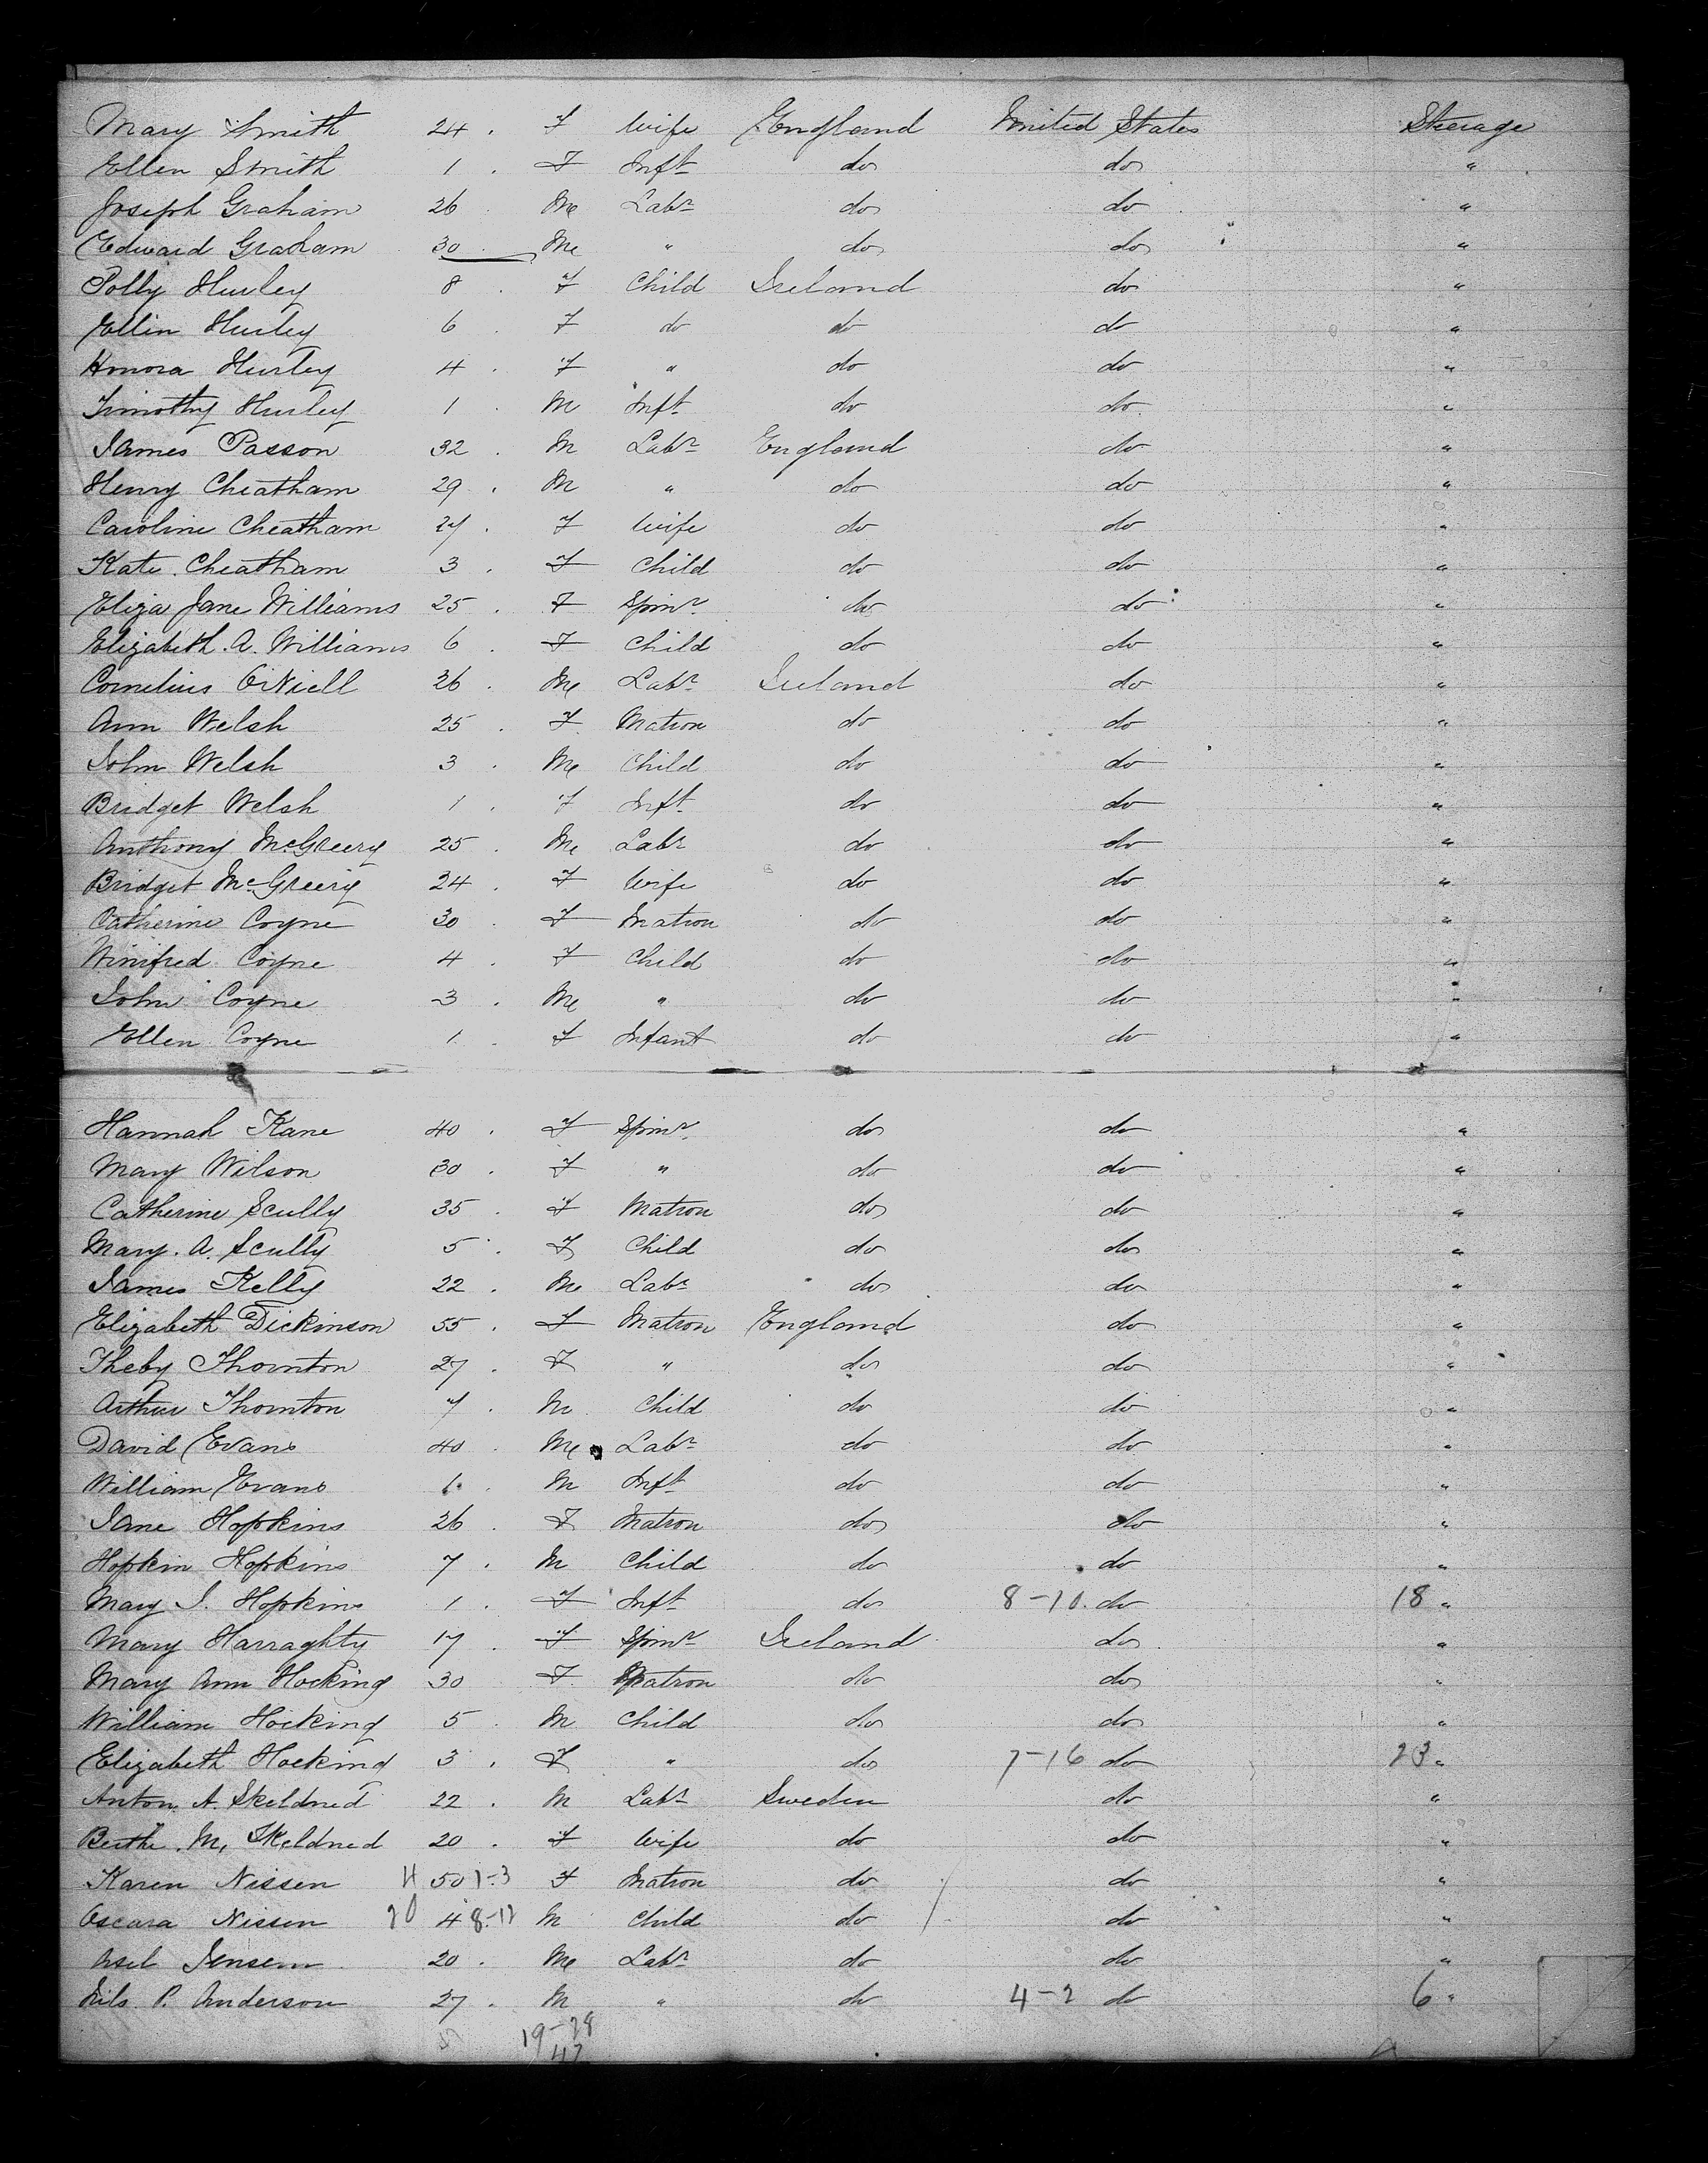 Mary Smith 24 . F Wife England United States Steerage
Ellen Smith 1 . F Inft do do "
Joseph Graham 26 . M Labr do do "
Edward Graham 30 . M " do do "
Polly Hurley 8 . F Child Ireland do "
Ellin Hurley 6 . F do do do "
Honora Hurley 4 . F " do do "
Timothy Hurley 1 . M Inft do do "
James Passon 32 . M Labr England do "
Henry Cheatham 29 . M " do do "
Caroline Cheatham 27 . F Wife do do "
Kate Cheatham 3 . F Child do do "
Eliza Jane Williams 25 . F Spinr do do "
Elizabeth A. Williams 6 . F Child do do "
Cornelius O'Niell 26 . M Labr Ireland do "
Ann Welsh 25 . F Matron do do "
John Welsh 3 . M Child do do "
Bridget Welsh 1 . F Inft do do "
Anthony McGreery 25 . M Labr do do "
Bridget McGreery 24 . F Wife do do "
Catherine Coyne 30 . F Matron do do "
Winifred Coyne 4 . F Child do do "
John Coyne 3 . M " do do "
Ellen Coyne 1 . F Infant do do "
Hannah Kane 40 . F Spinr do do "
Mary Wilson 30 . F " do do "
Catherine Scully 35 . F Matron do do "
Mary A. Scully 5 . F Child do do "
James Kelly 22 . M Labr do do "
Elizabeth Dickinson 55 . F Matron England do "
Theby Thornton 27 . F " do do "
Arthur Thornton 7 . M Child do do "
David Evans 40 . M Labr do do "
William Evans 1 . M Inft do do "
Jane Hopkins 26 . F Matron do do "
Hopkin Hopkins 7 . M Child do do "
Mary J. Hopkins 1 . F Inft do 8-10 do 18 "
Mary Harraghty 17 . F Spinr Ireland do "
Mary Ann Hocking 30 F Matron do do "
William Hocking 5 . M Child do do "
Elizabeth Hocking 3 . F " do 7-16 do 23 "
Anton A. Skeldned 22 . M Labr Sweden do "
Berthe M. Skeldned 20 . F Wife do do "
Karen Nissen 4 50 1-3 F Matron do do "
Oscara Nissen 20 4 8-12 M Child do do "
Axel Jensen 20 . M Labr do do "
Nils P. Anderson 27 . M " do 4-2 do 6 "
19-28
47